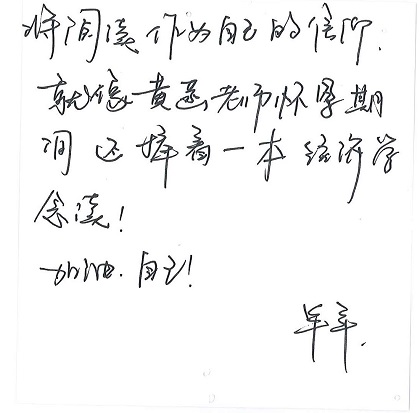 将阅读作为自己的信仰.
就像黄磊老师怀孕期
间还捧着一本经济学
念读!
加油.自己!